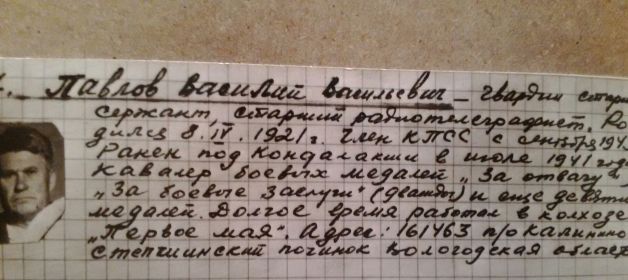 Павлов Василий Васильевич – Гвардии старш
сержант, старший радиотелеграфист. Ро
дился 8.IV.1921г. Член КПСС с сентября 194
Ранен под Кондалакши в июле 1941 года
Кавалер боевых медалей „За отвагу"
„За боевые заслуги" (дважды) и еще девяти
медалей. Долгое время работал в колхозе
„Первое мая". Адрес: 161463 п/о Калинино
степшинский починок Вологодская област